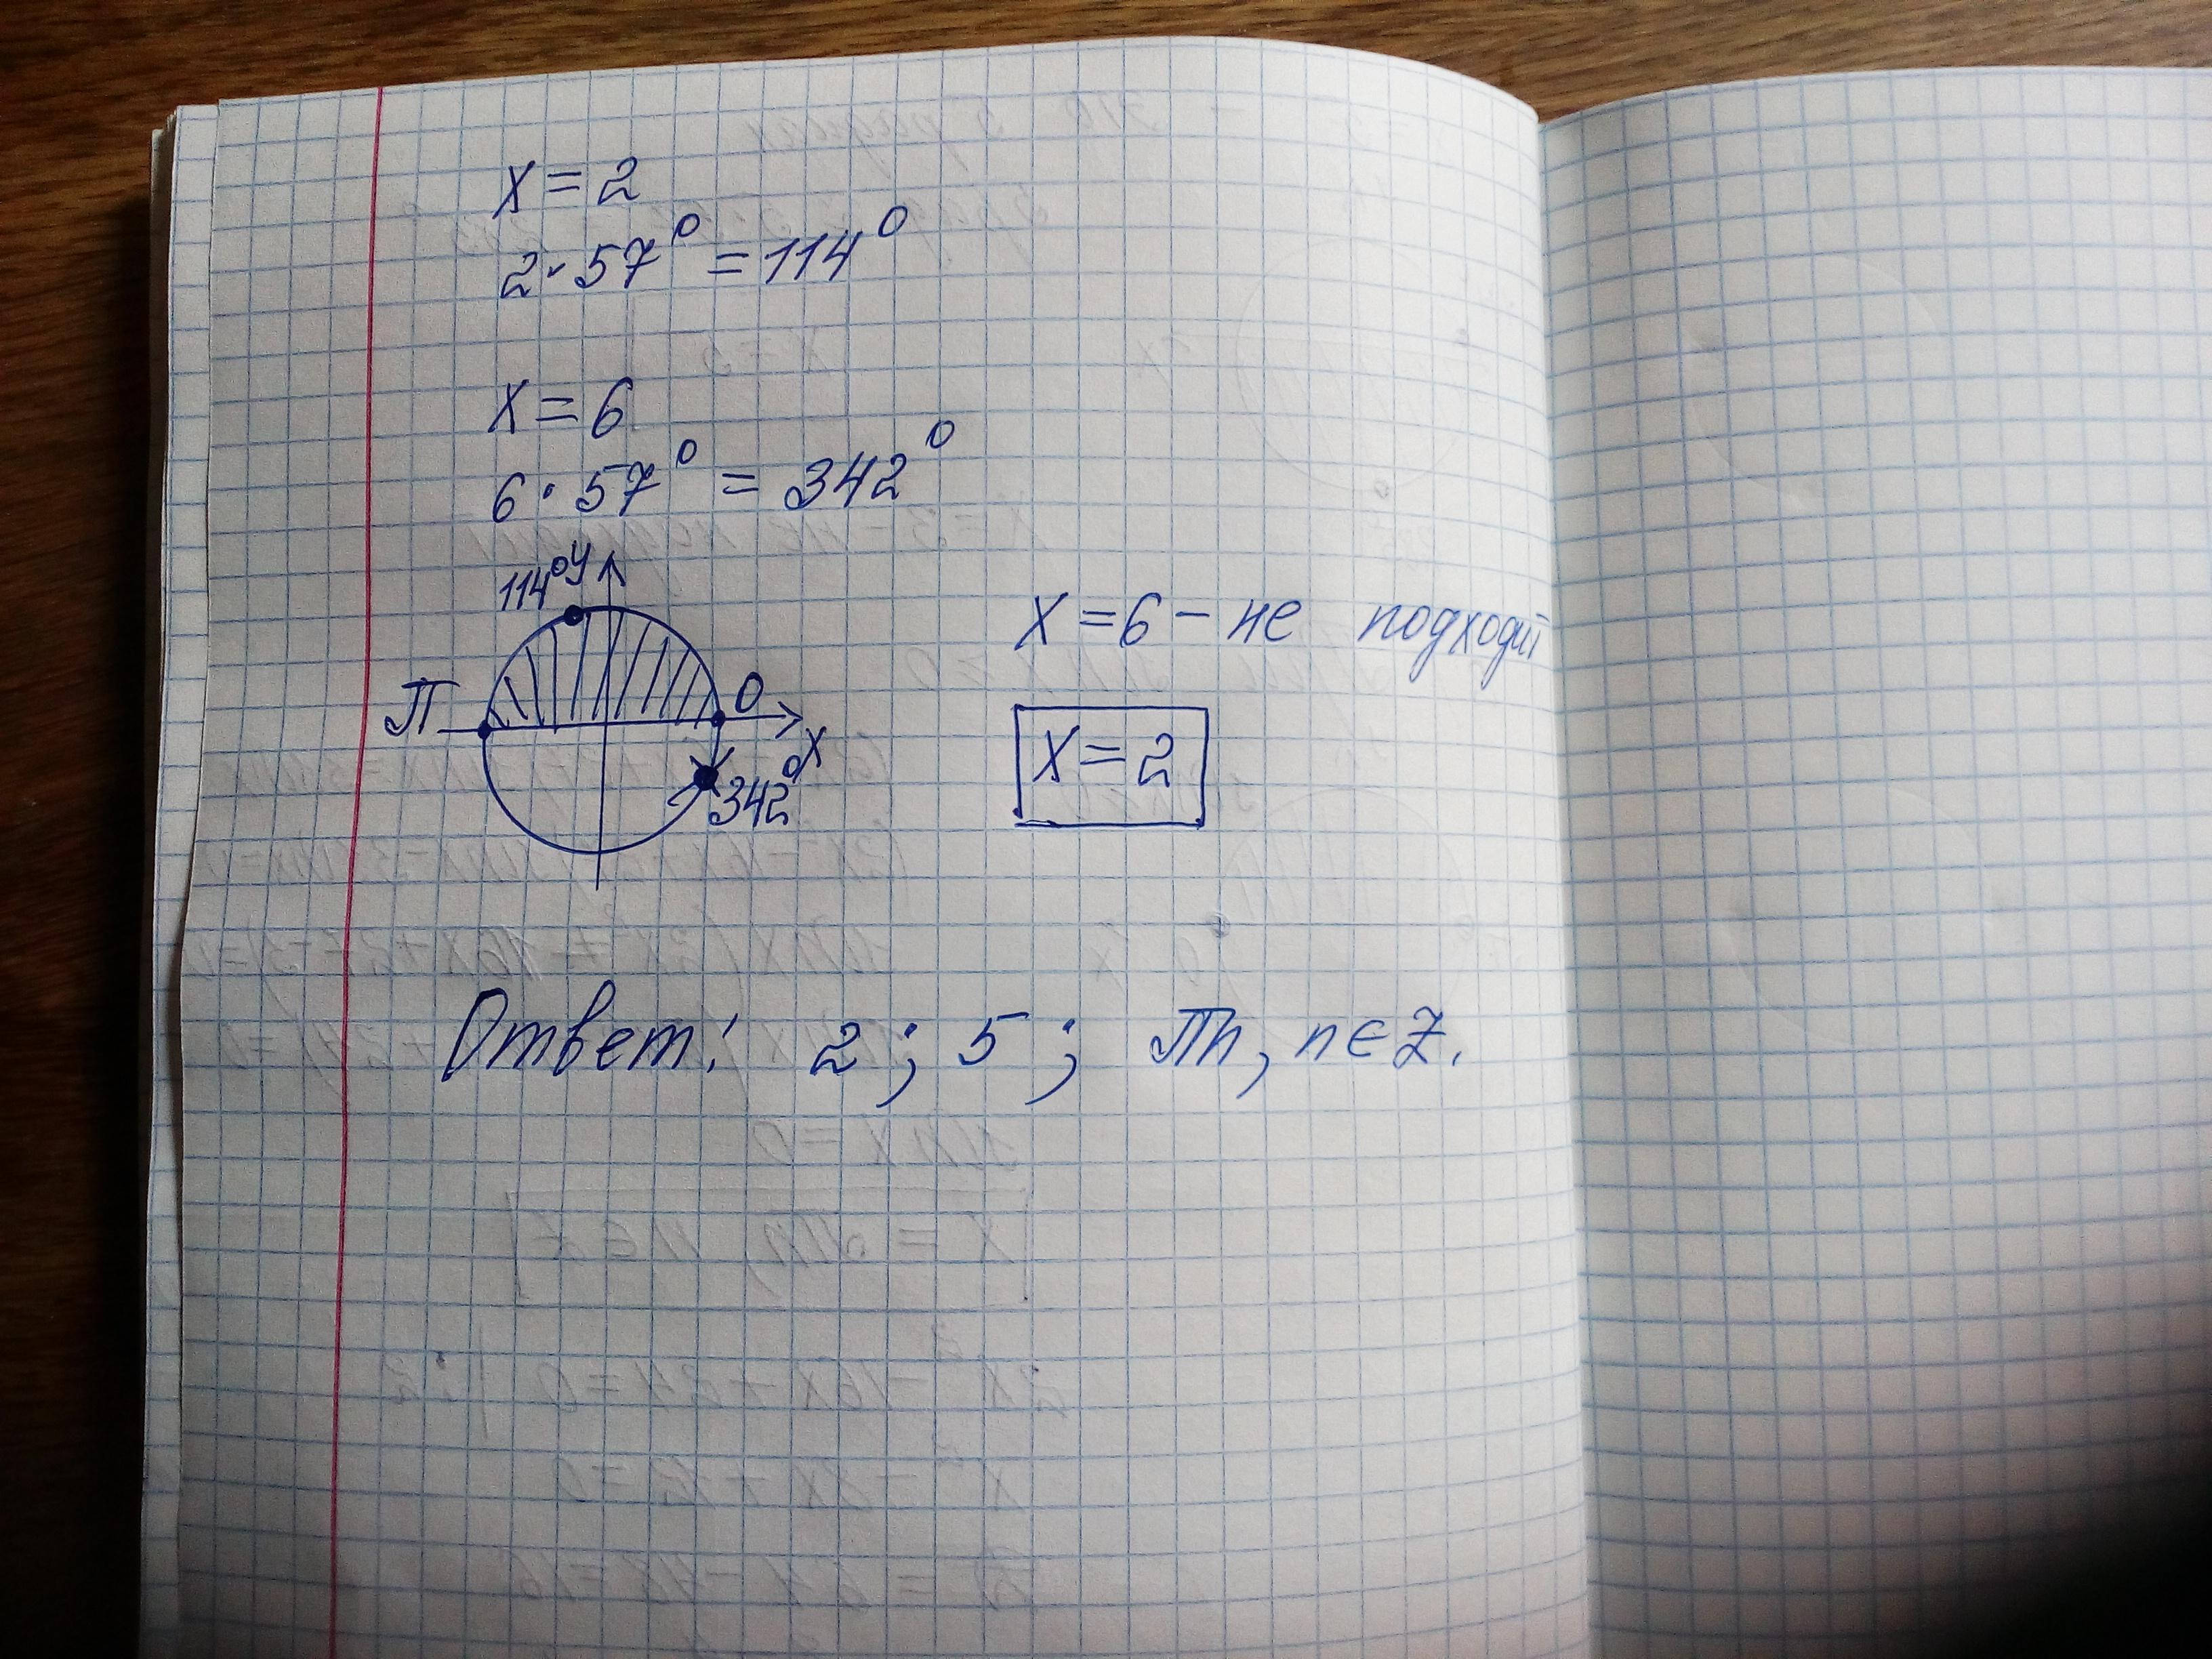 x = 2
2 · 57° = 114°
x = 6
6 · 57° = 342°
114° y
π 0
x
342°
x = 6 - не подходит
x = 2
Ответ: 2; 5; πn, n ∈ Z.